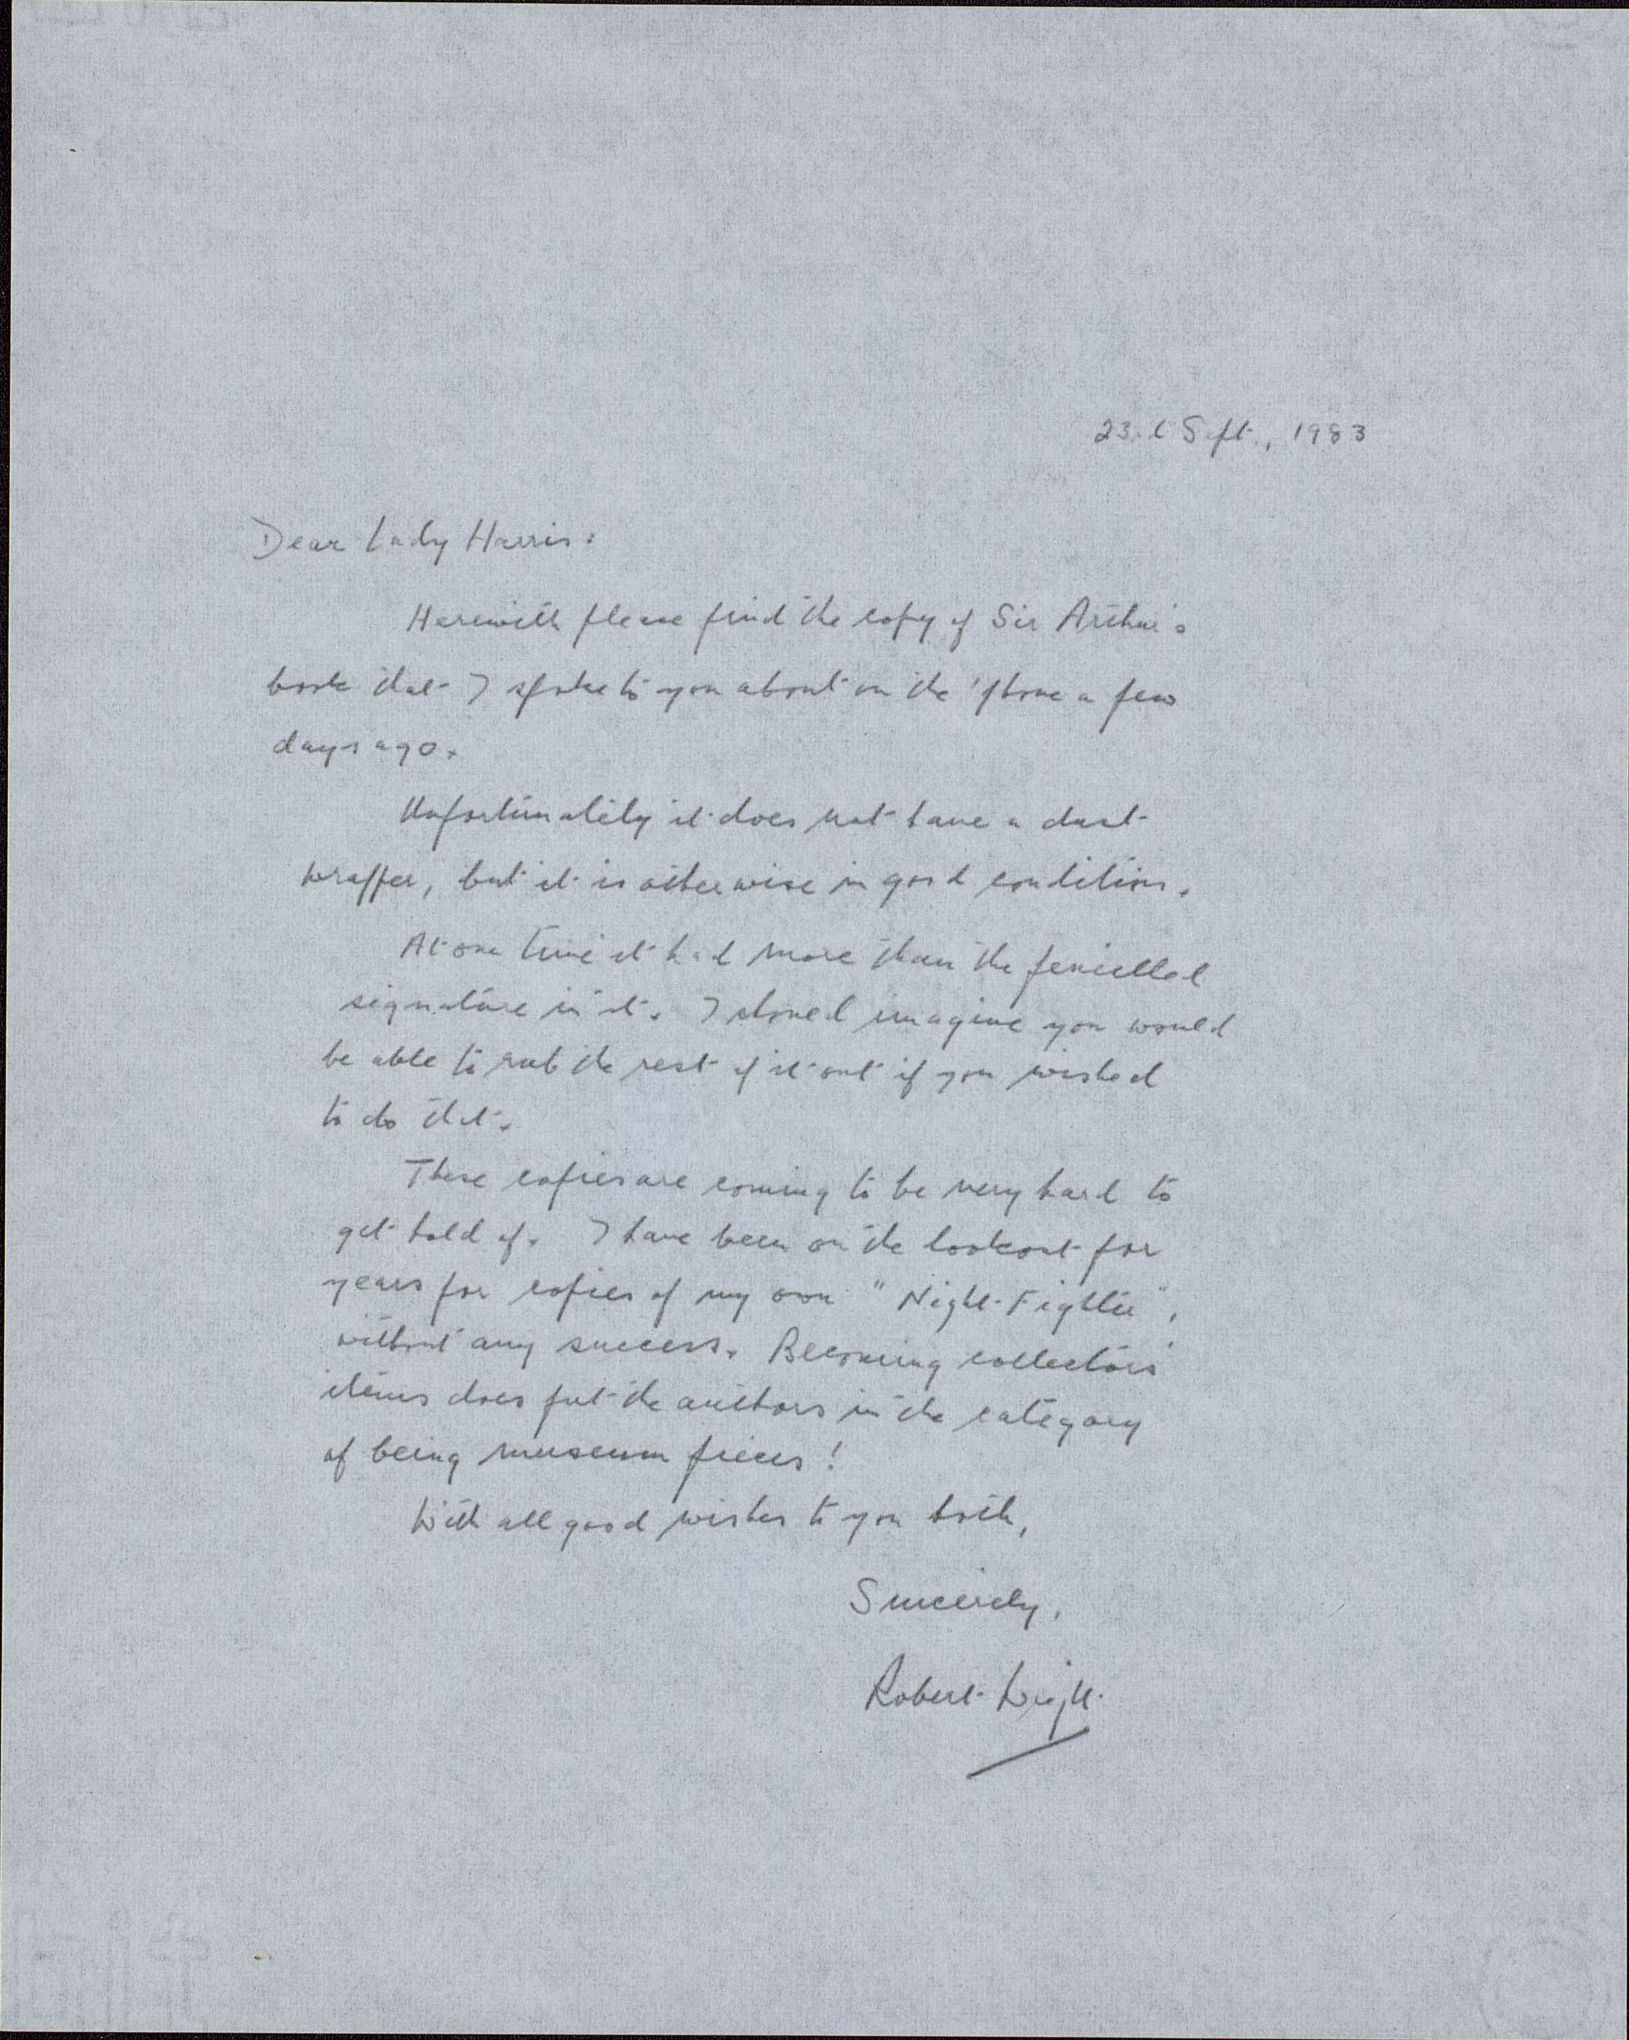 23rd Sept., 1983
Dear Lady Harris:
Herewith please find the copy of Sir Arthur's
book that I spoke to you about on the 'phone a few
days ago.
Unfortunately it does not have a dust-
wrapper, but it is otherwise in good condition.
At one time it had more than the pencilled
signature in it. I should imagine you would
be able to rub the rest of it out if you wished
to do that.
These copies are coming to be very hard to
get hold of. I have been on the lookout for
years for copies of my own "Night Fighter",
without any success. Becoming collectors'
items does put the authors in the category
of being museum pieces!
With all good wishes to you both,
Sincerely,
Robert Wright.